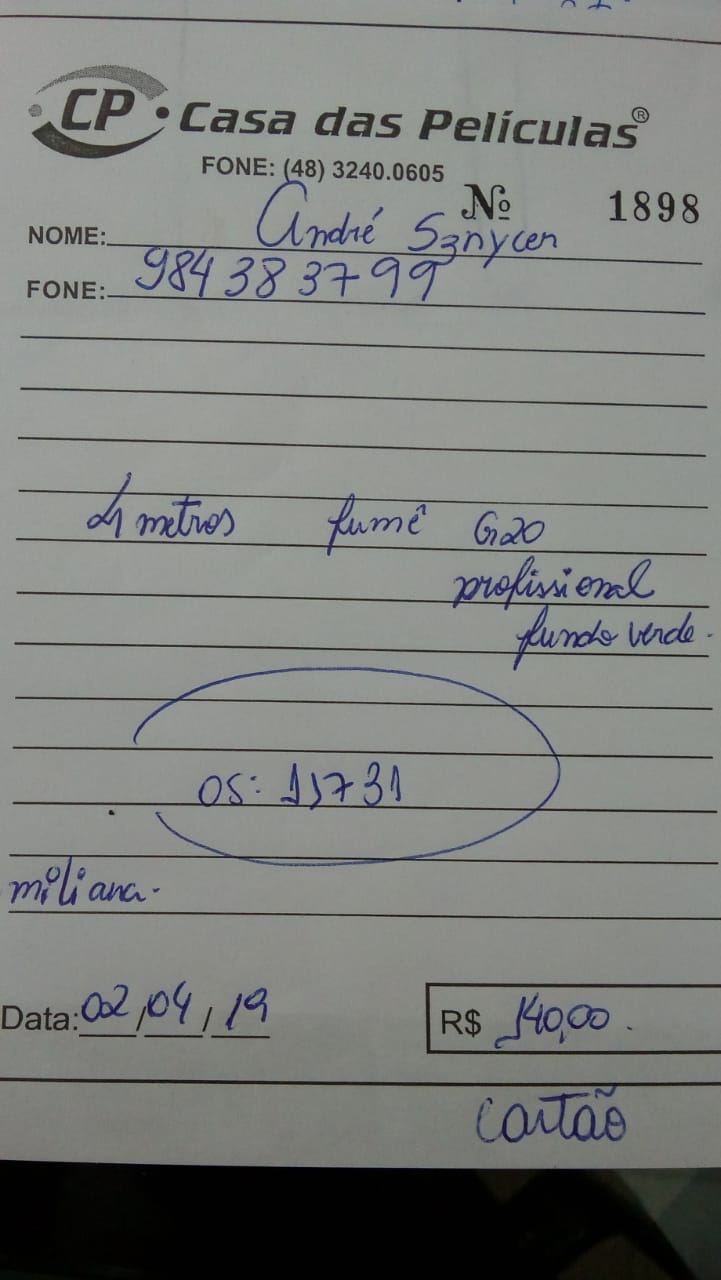 CP • Casa das Películas®
FONE: (48) 3240.0605
Nº 1898
NOME: André Sznycer
FONE: 984383799
4 metros fumê G20
profissional
fundo verde.
OS: 11731
miliana.
Data: 02/04/19
R$ 140,00.
cartão